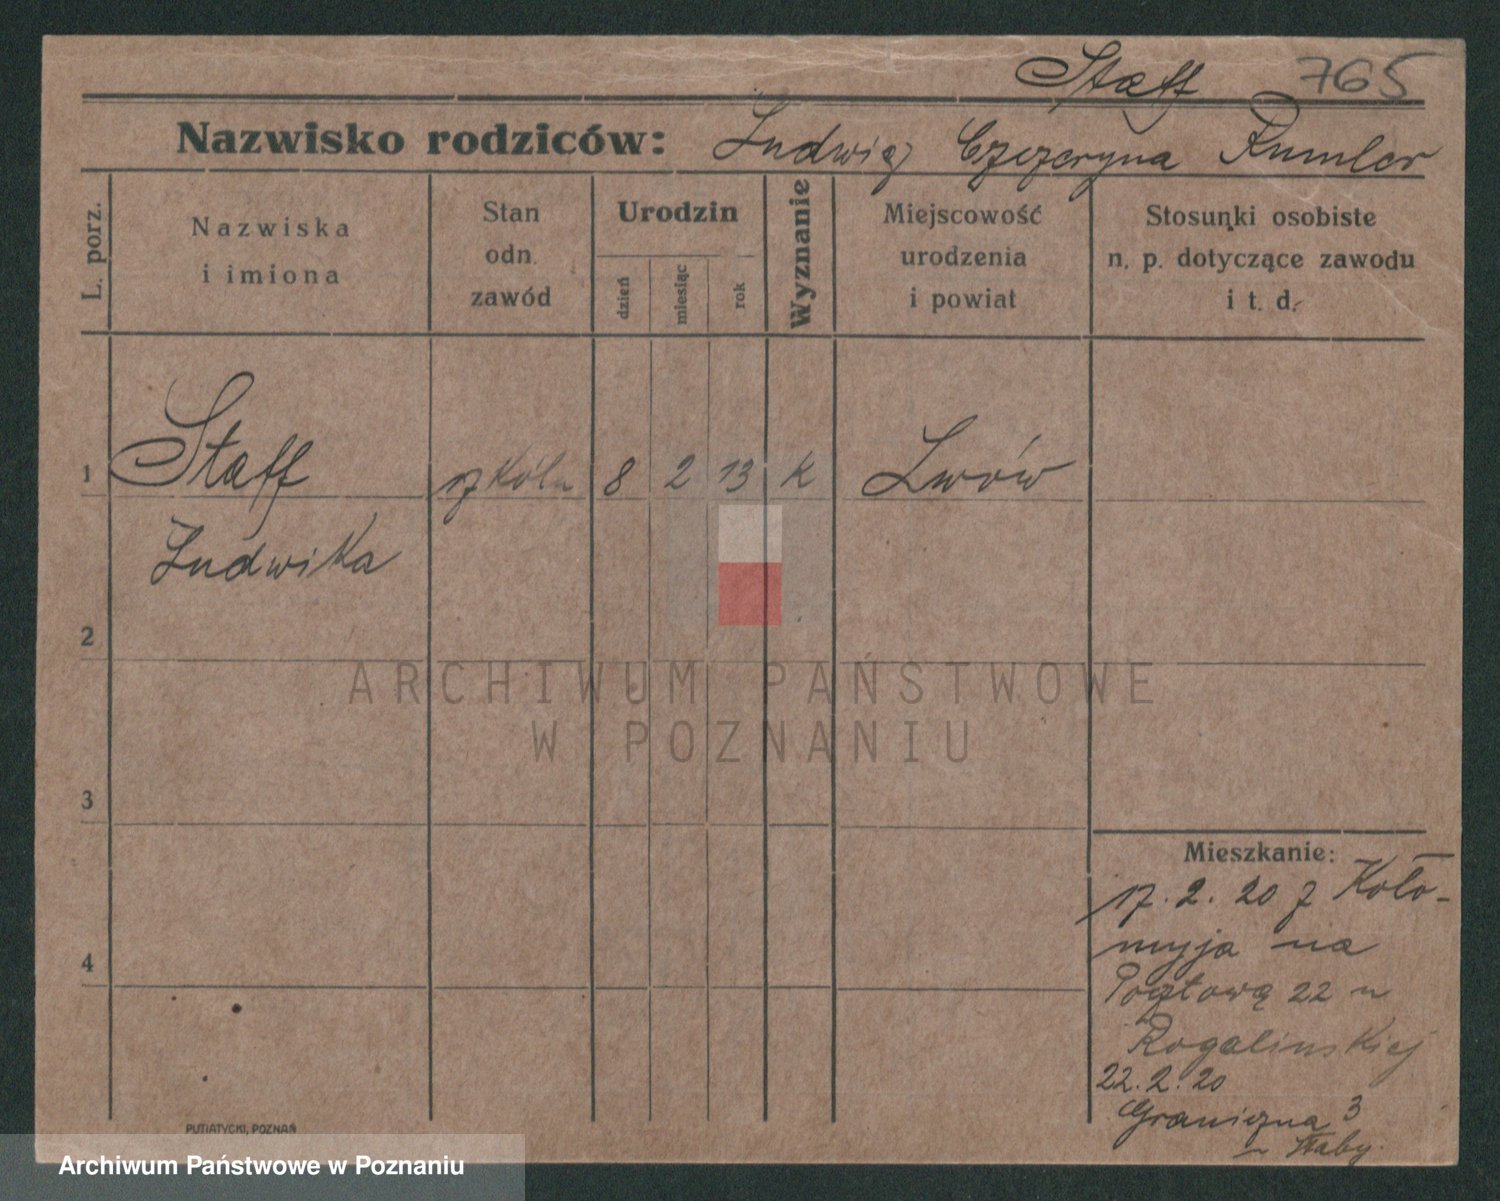 Staff 765
Nazwisko rodziców: Ludwig Czezeryna Rumler
L. porz.
Nazwiska
i imiona
Stan
odn.
zawód
Urodzin
dzień
miesiąc
rok
Wyznanie
Miejscowość
urodzenia
i powiat
Stosunki osobiste
n. p. dotyczące zawodu
i t. d.
1 Staff 8 2 13 k Lwów
Ludwika
2
ARCHIWUM PAŃSTWOWE
W POZNANIU
3
4
Mieszkanie:
17. 2. 20 z Koło-
myja na
Pocztową 22 u
Rogalinskiej
22. 2. 20
Graniczna 3
PUTIATYCKI, POZNAŃ
Archiwum Państwowe w Poznaniu